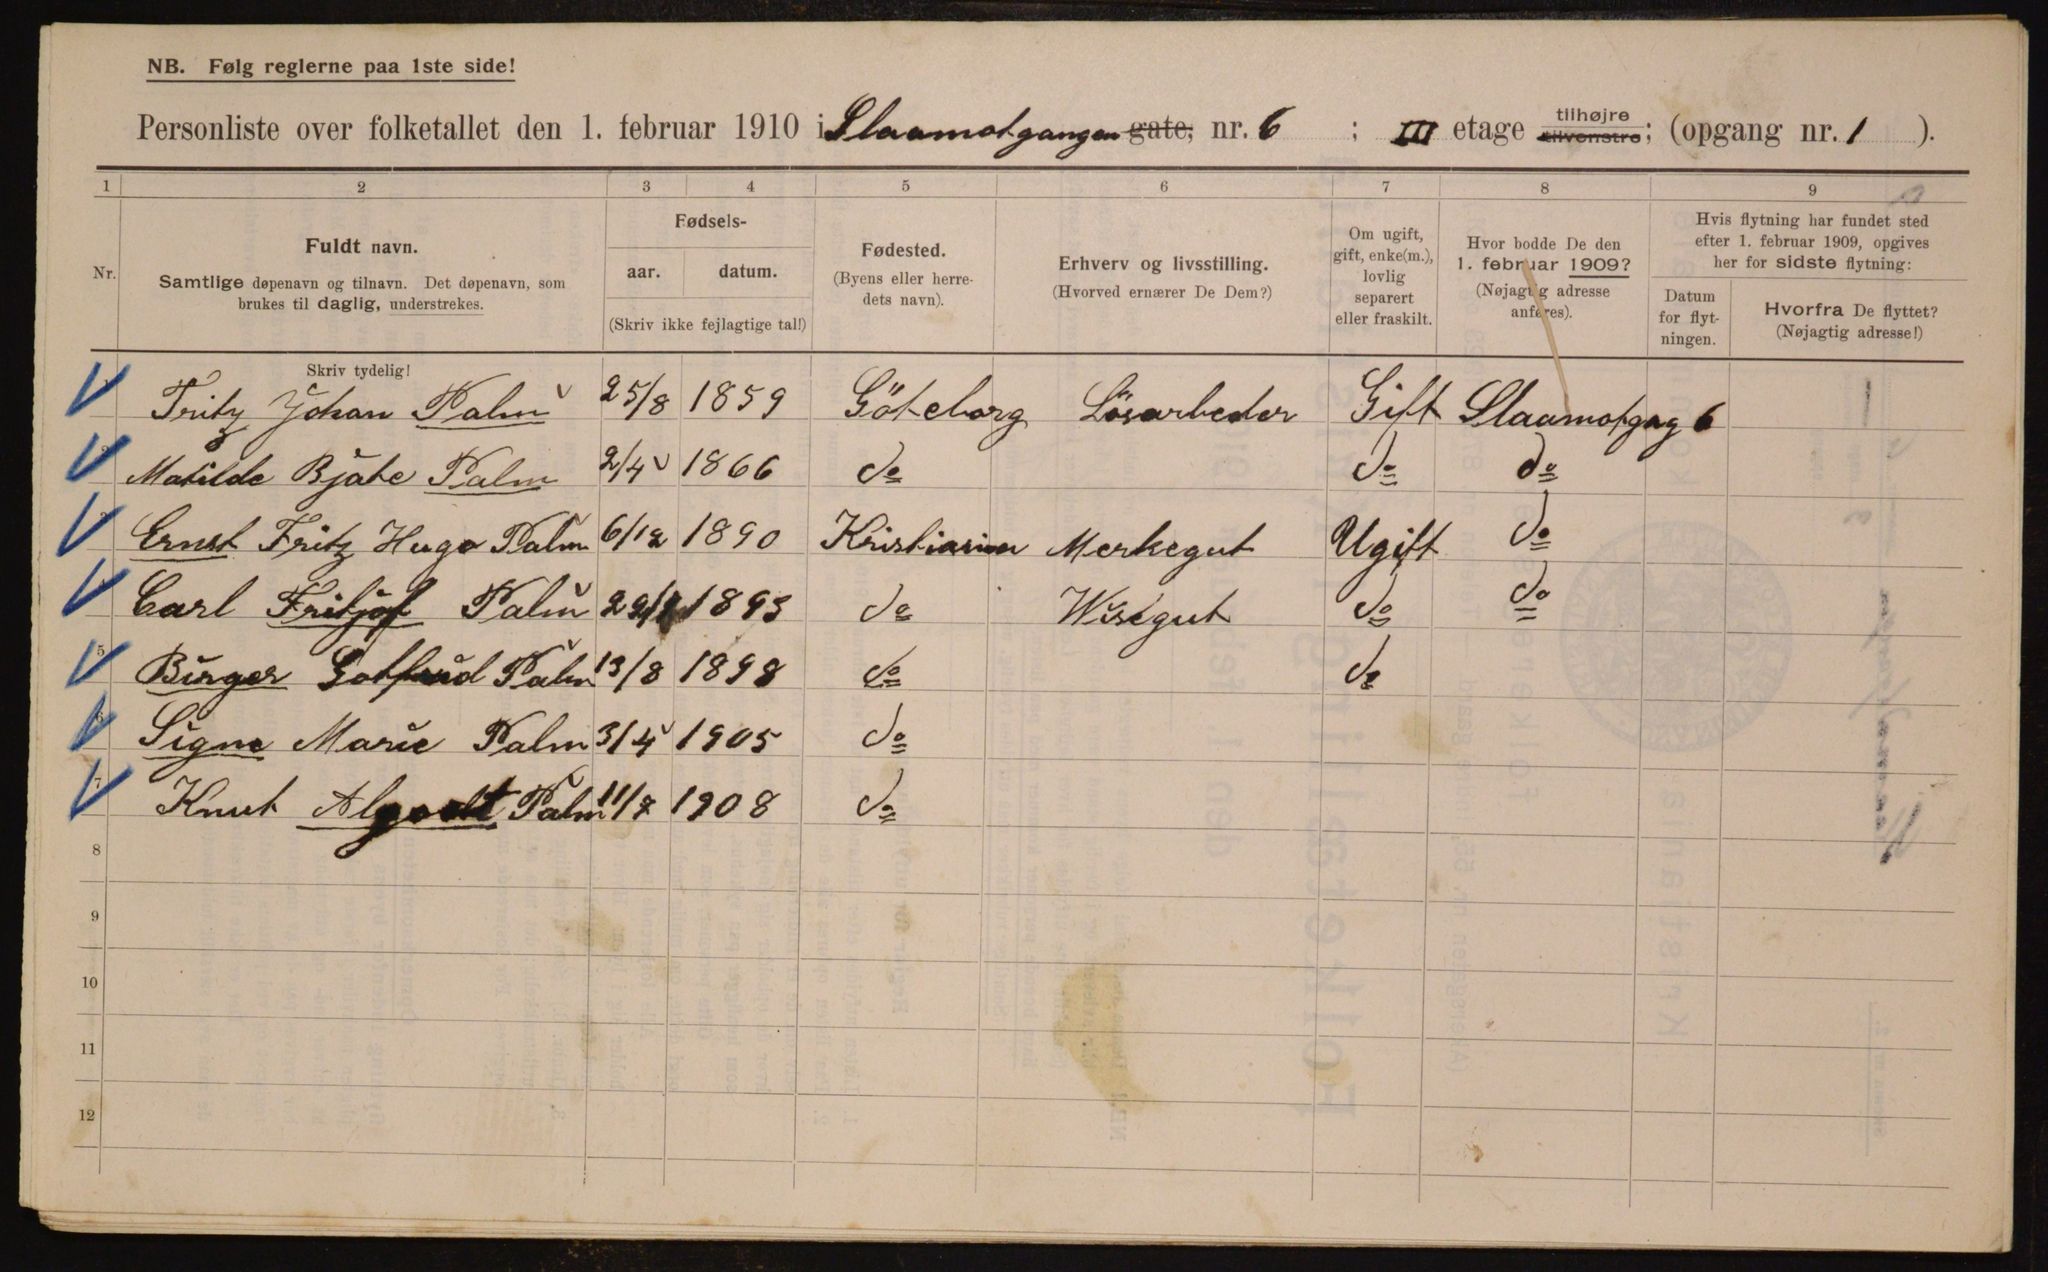 NB. Følg reglerne paa 1ste side!
Personliste over folketallet den 1. februar 1910 i Slaamotgangen gate, nr. 6 ; III etage tilhøjre tilvenstre; (opgang nr. 1 ).
1 2 3 4 5 6 7 8 9
Nr.
Fuldt navn.
Samtlige døpenavn og tilnavn. Det døpenavn, som
brukes til daglig, understrekes.
Skriv tydelig!
Fødsels-
aar. datum.
(Skriv ikke fejlagtige tal!)
Fødested.
(Byens eller herre-
dets navn).
Erhverv og livsstilling.
(Hvorved ernærer De Dem?)
Om ugift,
gift, enke(m.),
lovlig
separert
eller fraskilt.
Hvor bodde De den
1. februar 1909?
(Nøjagtig adresse
anføres).
Hvis flytning har fundet sted
efter 1. februar 1909, opgives
her for sidste flytning:
Datum
for flyt-
ningen.
Hvorfra De flyttet?
(Nøjagtig adresse!)
Fritz Johan Palm 25/8 1859 Göteborg Lösarbeder Gift Slaamotgag 6
Matilde Bjate Palm 2/4 1866 do do do
Ernst Fritz Hugo Palm 6/12 1890 Kristiania Merkegut Ugift do
Carl Fritjof Palm 1893 do Visegut do do
5 Birger Gotfrid Palm 13/8 1898 do do
6 Signe Marie Palm 3/4 1905 do
7 Knut Palm 11/7 1908 do
8
9
10
11
12